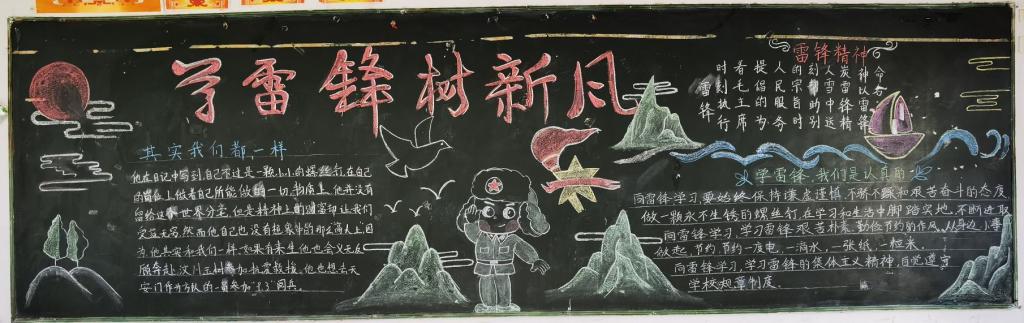 学雷锋树新风
其实我们都一样
他在日记中写到自己不过是一颗小小的螺丝钉,在自己
的岗位上做着自己所能做的一切,物质上他并没有
留给这个世界分毫,但是精神上的财富却让我们
受益无穷,然而他自己也没有想象中的那么高人上,因
为他其实和我们一样,如果有来生他也会义无反
顾奔赴汶川玉树参加地震救援,他也想去天
安门作为方队的一员参加
雷锋精神
命令
神以雷锋
炭雷锋精
人雪中送
刻助别
的宗旨时
人民服务
提倡的为
看毛主席
时刻执行
雷锋
学雷锋,我们是认真的
向雷锋学习,要始终保持谦虚谨慎、不骄不躁和艰苦奋斗的态度
做一颗永不生锈的螺丝钉,在学习和生活中脚踏实地,不断进取
向雷锋学习,学习雷锋艰苦朴素、勤俭节约的作风,从身边小事
做起,节约一度电、一滴水、一张纸、一粒米。
向雷锋学习,学习雷锋的集体主义精神,自觉遵守
学校规章制度。